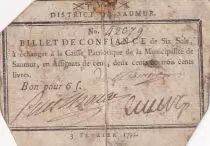 DISTRICT DE SAUMUR.
No. 42079
BILLET DE CONFIANCE de Six Sols,
à échanger à la Caisse Patriotique de la Municipalité de
Saumur, en Assignats de cent, deux cents ou trois cents
livres.
Bon pour 6 s.